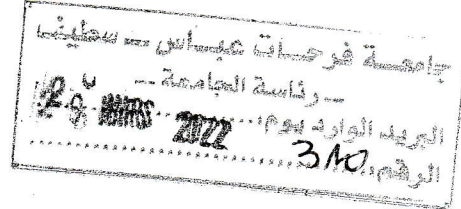 جامعة فرحات عباس – سطيف
– رئاسة الجامعة –
البريد الوارد يوم: MARS 2022
الرقم: